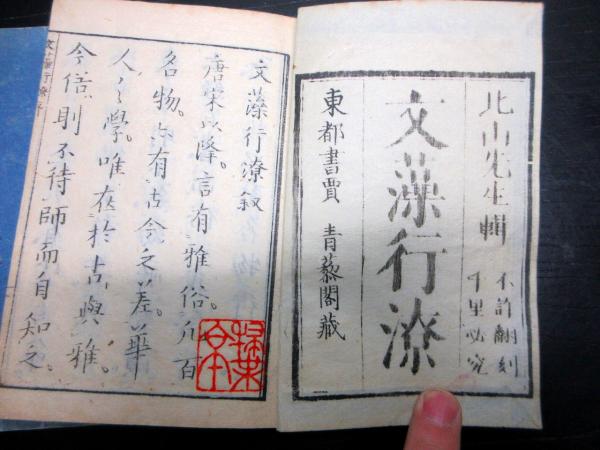 北山先生輯
不許翻刻
千里必究
文藻行潦
東都書賈 青藜閣藏
文藻行潦叙
唐宋以降。言有雅俗。凡百
名物。亦有古今之差。華
人之學。唯在於古與雅。
今俗則不待師而自知之。